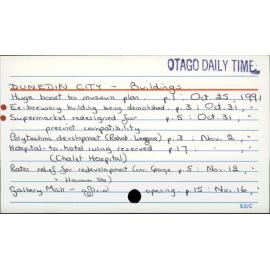 OTAGO DAILY TIMES
DUNEDIN CITY - Buildings
Huge boost to museum plan. p.1, Oct. 25, 1991
Ex-brewery building being demolished. p.3: Oct. 31, "
Supermarket redesigned for p.5: Oct. 31, "
precinct compatibility.
Polytechnic development (Robot League) p.3: Nov. 2, "
Hospital-to-hotel ruling reserved p.17: " "
(Chalet Hospital)
Rates relief for redevelopment (cnr. George p.5: Nov. 12, "
" Hanover Sts)
Gallery Mall - official opening. p.15: Nov. 16, "
53/C